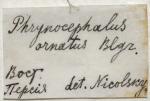 Phrynocephalus
ornatus Blgr.
Вост.
Персія det. Nicolsky